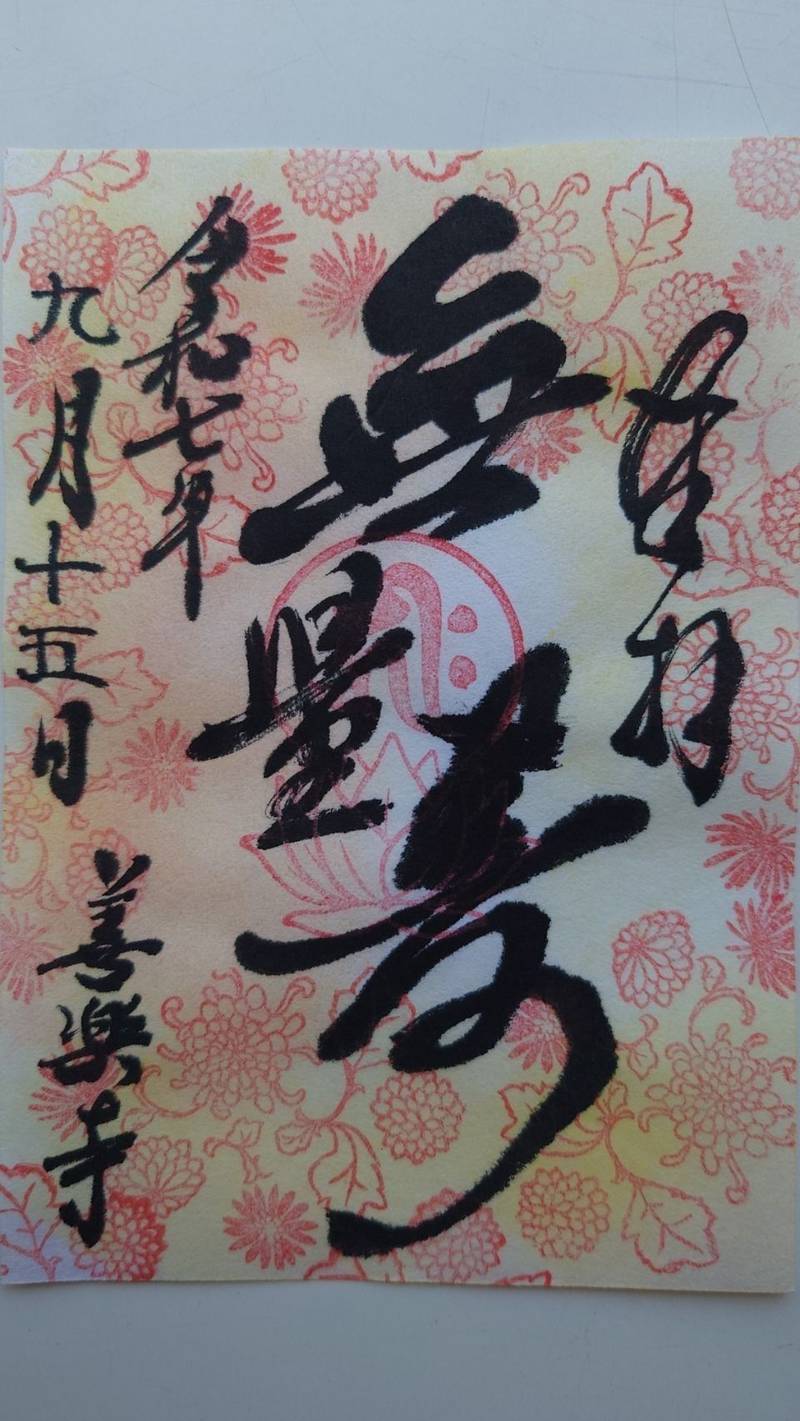 奉拝
無量寿
令和七年
九月十五日
善楽寺